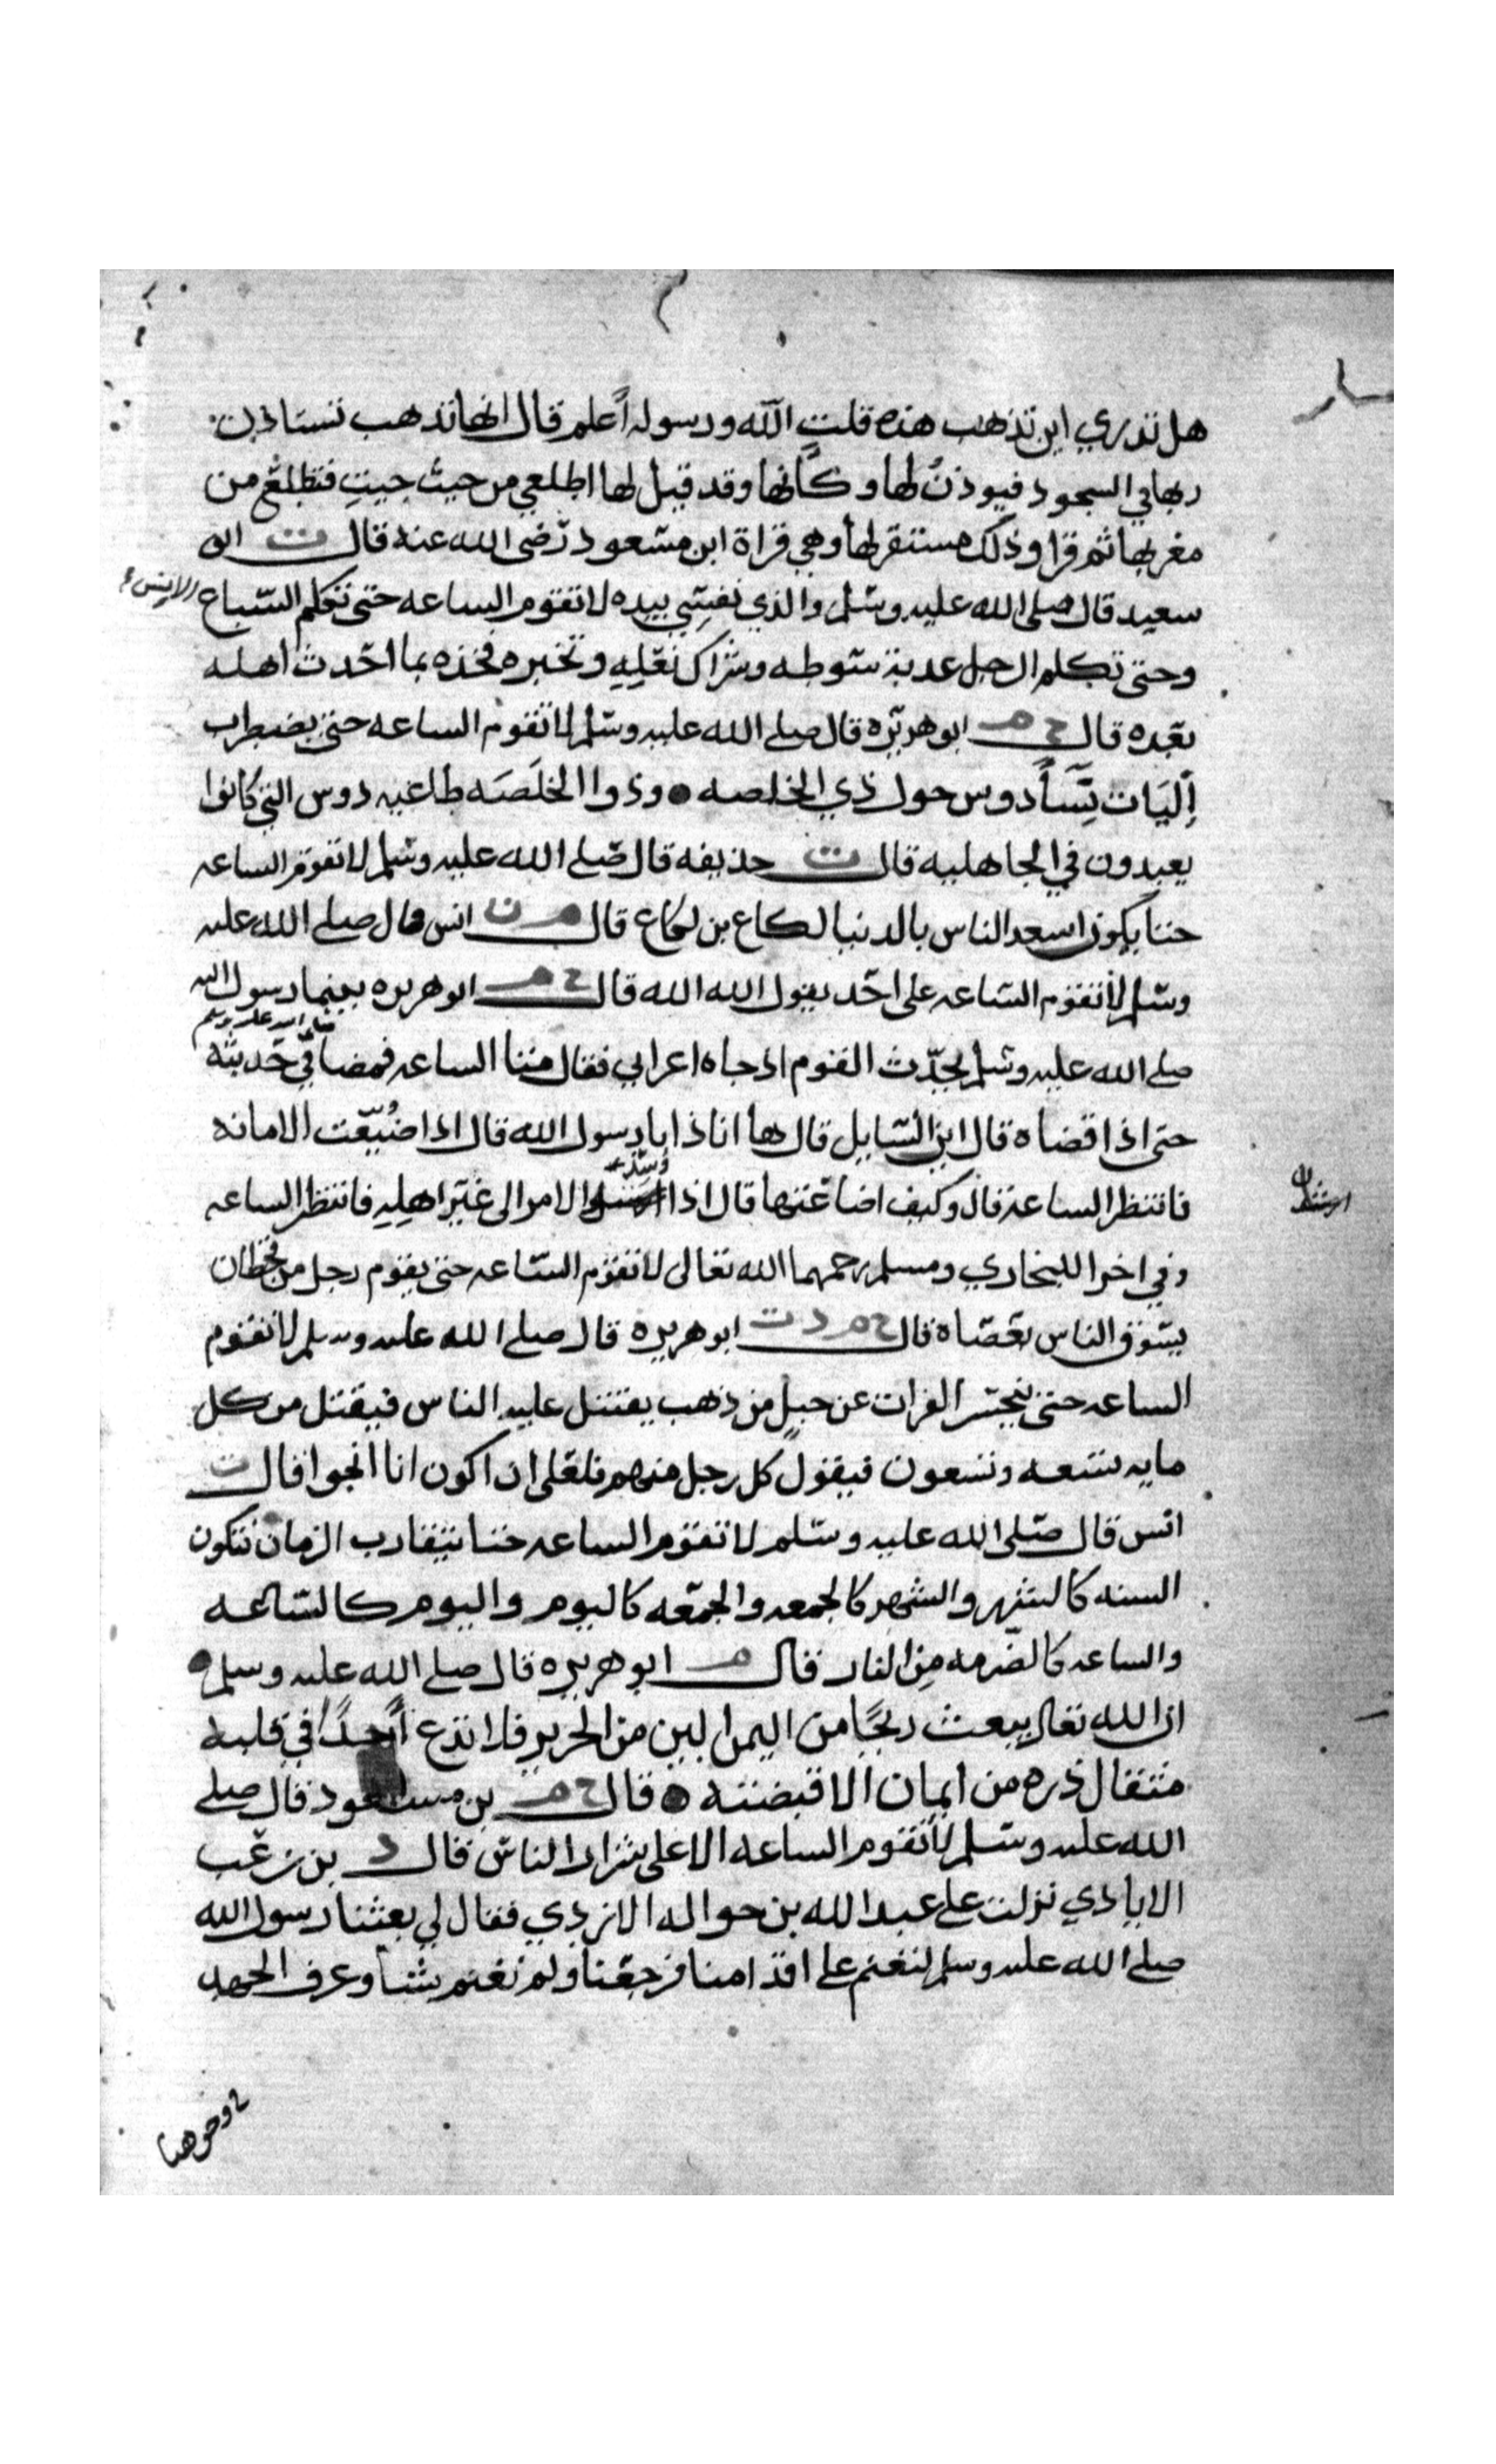 هل تدري اين تذهب هذه قلت الله ورسوله أعلم قال انها تذهب تستاذن
ربها في السجود فيوذنُ لها وكأنها وقد قيل لها اطلعي من حيث جيتِ فتطلع من
مغربها ثم قرا وذلك مستقر لها وهي قراة ابن مسعود رضى الله عنه قال ت ابو
سعيد قال صلى الله عليه وسلم والذي نفسي بيده لا تقوم الساعه حتى تكلم السباع الانس
وحتى تكلم الرجل عدبة سوطه وشراك نعله وتخبره فخذه بما احدث اهله
بعده قال خ م ابو هريره قال صلى الله عليه وسلم لا تقوم الساعه حتى يضطرب
إليَات نِسَأ دوس حول ذي الخلصه وذوا الخلَصَه طاغيه دوس التي كانوا
يعبدون في الجاهليه قال ت حذيفه قال صلى الله عليه وسلم لا تقوم الساعه
حتا يكون اسعد الناس بالدنيا لكاع بن لكاع قال م ت انس قال صلى الله عليه
وسلم لا تقوم الساعه على احد يقول الله الله قال خ م ابو هريره بينما رسول الله
صلى الله عليه وسلم
صلى الله عليه وسلم يحدّث القوم اذ جاه اعرابي فقال متنا الساعه فمضا في حديثه
حتى اذا قضاه قال اين السايل قال ها انا ذا يا رسول الله قال اذا ضُيّعت الامانه
وُسّد
فانتظر الساعه قال وكيف اضاعتها قال اذا الامر الى غير اهلِهِ فانتظر الساعه
وفي اخرا للبخاري ومسلم رحمهما الله تعالى لا تقوم الساعه حتى يقوم رجل من قحطان
يسوق الناس بعصاه قال خ م د ت ابو هريره قال صلى الله عليه وسلم لا تقوم
الساعه حتى يحسر الفرات عن جبلٍ من ذهب يقتتل عليه الناس فيقتل من كل
مايه تسعه وتسعون فيقول كل رجل منهم فلعلى ان اكون انا انجوا قال ت
انس قال صلى الله عليه وسلم لا تقوم الساعه حتا يتقارب الزمان فتكون
السنه كالشهر والشهر كالجمعه والجمعه كاليوم واليوم كالساعه
والساعه كالضرمه مِن النار قال م ابو هريره قال صلى الله عليه وسلم
ان الله تعالى يبعث ريحًا من اليمن الين من الحرير فلا تدع أحداً في قلبه
مثقال ذره من ايمان الا قبضته قال خ م بن مسعود قال صلى
الله عليه وسلم لا تقوم الساعه الا على شرار الناس قال د بن زغب
الايادي نزلت على عبد الله بن حواله الازدي فقال لي بعثنا رسول الله
صلى الله عليه وسلم لنغنم على اقدامنا فرجعنا ولم نغنم شيا وعرف الجهد
2 وجوهنا